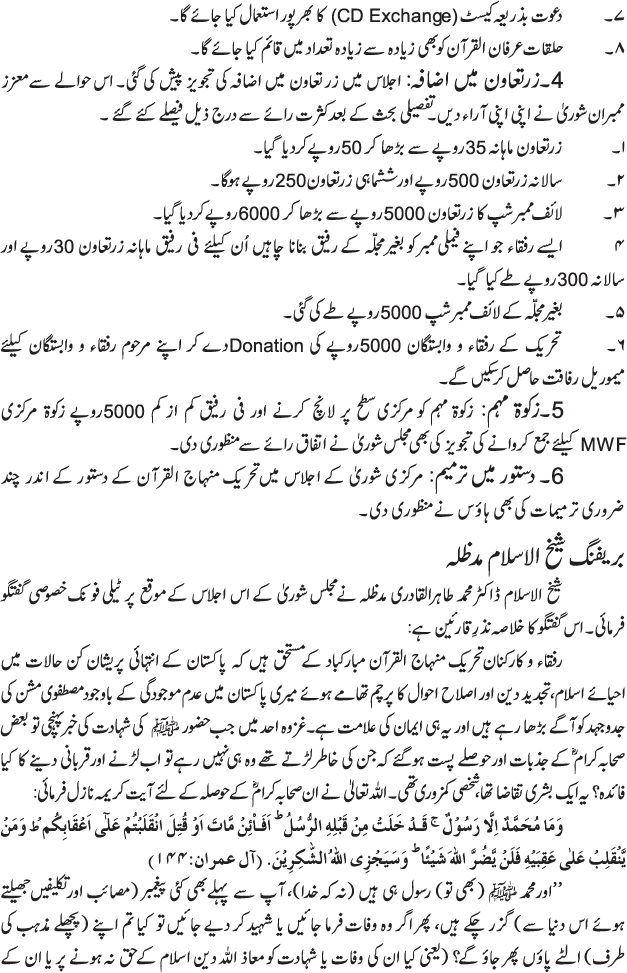 ۷۔ دعوت بذریعہ کیسٹ (CD Exchange) کا بھرپور استعمال کیا جائے گا۔
۸۔ حلقات عرفان القرآن کو بھی زیادہ سے زیادہ تعداد میں قائم کیا جائے گا۔
4۔ زرتعاون میں اضافہ: اجلاس میں زرتعاون میں اضافہ کی تجویز پیش کی گئی۔ اس حوالے سے معزز
ممبران شوریٰ نے اپنی اپنی آراء دیں۔ تفصیلی بحث کے بعد کثرت رائے سے درج ذیل فیصلے کئے گئے ۔
۱۔ زرتعاون ماہانہ 35 روپے سے بڑھا کر 50 روپے کردیا گیا۔
۲۔ سالانہ زرتعاون 500 روپے اور ششماہی زرتعاون 250 روپے ہوگا۔
۳۔ لائف ممبر شپ کا زرتعاون 5000 روپے سے بڑھا کر 6000 روپے کردیا گیا۔
۴ ایسے رفقاء جو اپنے فیملی ممبر کو بغیر مجلّہ کے رفیق بنانا چاہیں اُن کیلئے فی رفیق ماہانہ زرتعاون 30 روپے اور
سالانہ 300 روپے طے کیا گیا۔
۵۔ بغیر مجلّہ کے لائف ممبر شپ 5000 روپے طے کی گئی۔
۶۔ تحریک کے رفقاء و وابستگان 5000 روپے کی Donation دے کر اپنے مرحوم رفقاء و وابستگان کیلئے
میموریل رفاقت حاصل کرسکیں گے۔
5۔ زکوٰۃ مہم: زکوٰۃ مہم کو مرکزی سطح پر لانچ کرنے اور فی رفیق کم از کم 5000 روپے زکوٰۃ مرکزی
MWF کیلئے جمع کروانے کی تجویز کی بھی مجلس شوریٰ نے اتفاق رائے سے منظوری دی۔
6۔ دستور میں ترمیم: مرکزی شوریٰ کے اجلاس میں تحریک منہاج القرآن کے دستور کے اندر چند
ضروری ترمیمات کی بھی ہاؤس نے منظوری دی۔
بریفنگ شیخ الاسلام مدظلہ
شیخ الاسلام ڈاکٹر محمد طاہرالقادری مدظلہ نے مجلس شوریٰ کے اس اجلاس کے موقع پر ٹیلی فونک خصوصی گفتگو
فرمائی۔ اس گفتگو کا خلاصہ نذرِ قارئین ہے:
رفقاء و کارکنان تحریک منہاج القرآن مبارکباد کے مستحق ہیں کہ پاکستان کے انتہائی پریشان کن حالات میں
احیائے اسلام، تجدید دین اور اصلاح احوال کا پرچم تھامے ہوئے میری پاکستان میں عدم موجودگی کے باوجود مصطفوی مشن کی
جدوجہد کو آگے بڑھا رہے ہیں اور یہ ہی ایمان کی علامت ہے۔ غزوہ احد میں جب حضور ﷺ کی شہادت کی خبر پہنچی تو بعض
صحابہ کرامؓ کے جذبات اور حوصلے پست ہوگئے کہ جن کی خاطر لڑتے تھے وہ ہی نہیں رہے تو اب لڑنے اور قربانی دینے کا کیا
فائدہ؟ یہ ایک بشری تقاضا تھا، شخصی کمزوری تھی۔ اللہ تعالیٰ نے ان صحابہ کرامؓ کے حوصلہ کے لئے آیت کریمہ نازل فرمائی:
وَمَا مُحَمَّدٌ اِلَّا رَسُوْلٌ ج قَدْ خَلَتْ مِنْ قَبْلِهِ الرُّسُلُ ط اَفَائِنْ مَّاتَ اَوْ قُتِلَ انْقَلَبْتُمْ عَلٰٓی اَعْقَابِکُمْ ط وَمَنْ
یَّنْقَلِبْ عَلٰی عَقِبَیْهِ فَلَنْ یَّضُرَّ اللهَ شَیْئًا ط وَسَیَجْزِی اللهُ الشّٰکِرِیْنَ. (آل عمران: ۱۴۴)
’’اور محمد ﷺ (بھی تو) رسول ہی ہیں (نہ کہ خدا)، آپ سے پہلے بھی کئی پیغمبر (مصائب اور تکلیفیں جھیلتے
ہوئے اس دنیا سے) گزر چکے ہیں، پھر اگر وہ وفات فرما جائیں یا شہید کر دیے جائیں تو کیا تم اپنے (پچھلے مذہب کی
طرف) الٹے پاؤں پھر جاؤ گے؟ (یعنی کیا ان کی وفات یا شہادت کو معاذ اللہ دین اسلام کے حق نہ ہونے پر یا ان کے